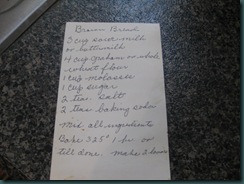 Brown Bread
3 cup sour milk
or buttermilk
4 cup Graham or whole
wheat flour
1 cup molasses
1 cup sugar
2 teas. salt
2 teas. baking soda
Mix all ingredient
Bake 325° 1 hr or
till done. Makes 2 loaves